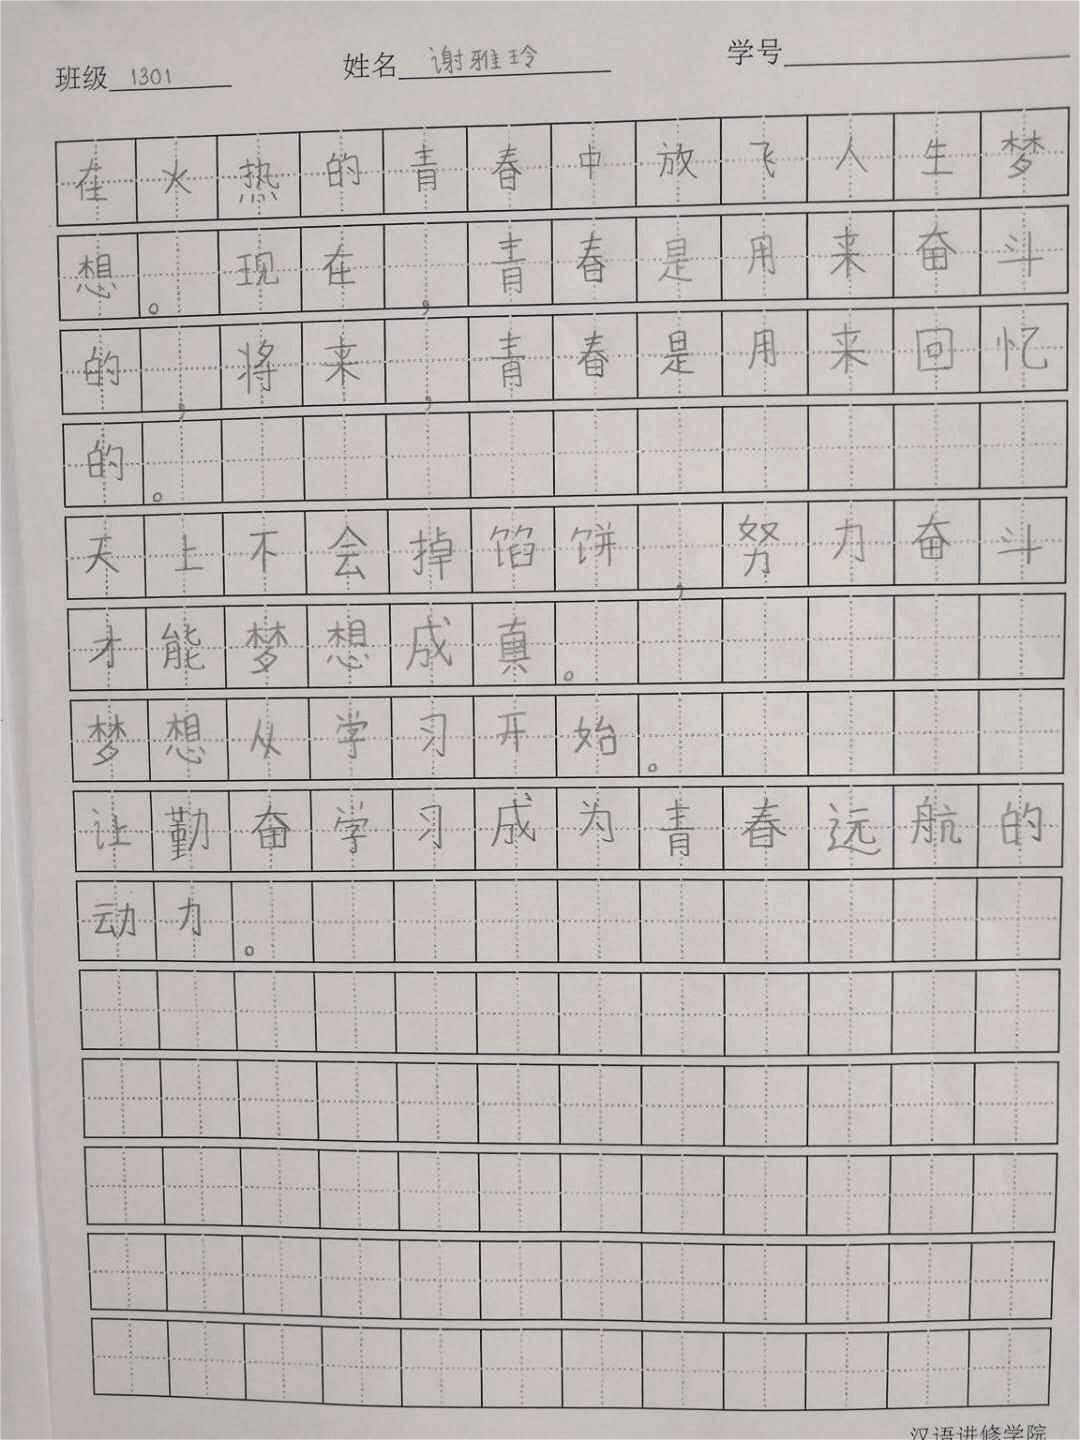 班级 1301 姓名 谢雅玲 学号
在火热的青春中放飞人生梦
想。现在,青春是用来奋斗
的,将来,青春是用来回忆
的。
天上不会掉馅饼,努力奋斗
才能梦想成真。
梦想从学习开始。
让勤奋学习成为青春远航的
动力。
汉语进修学院